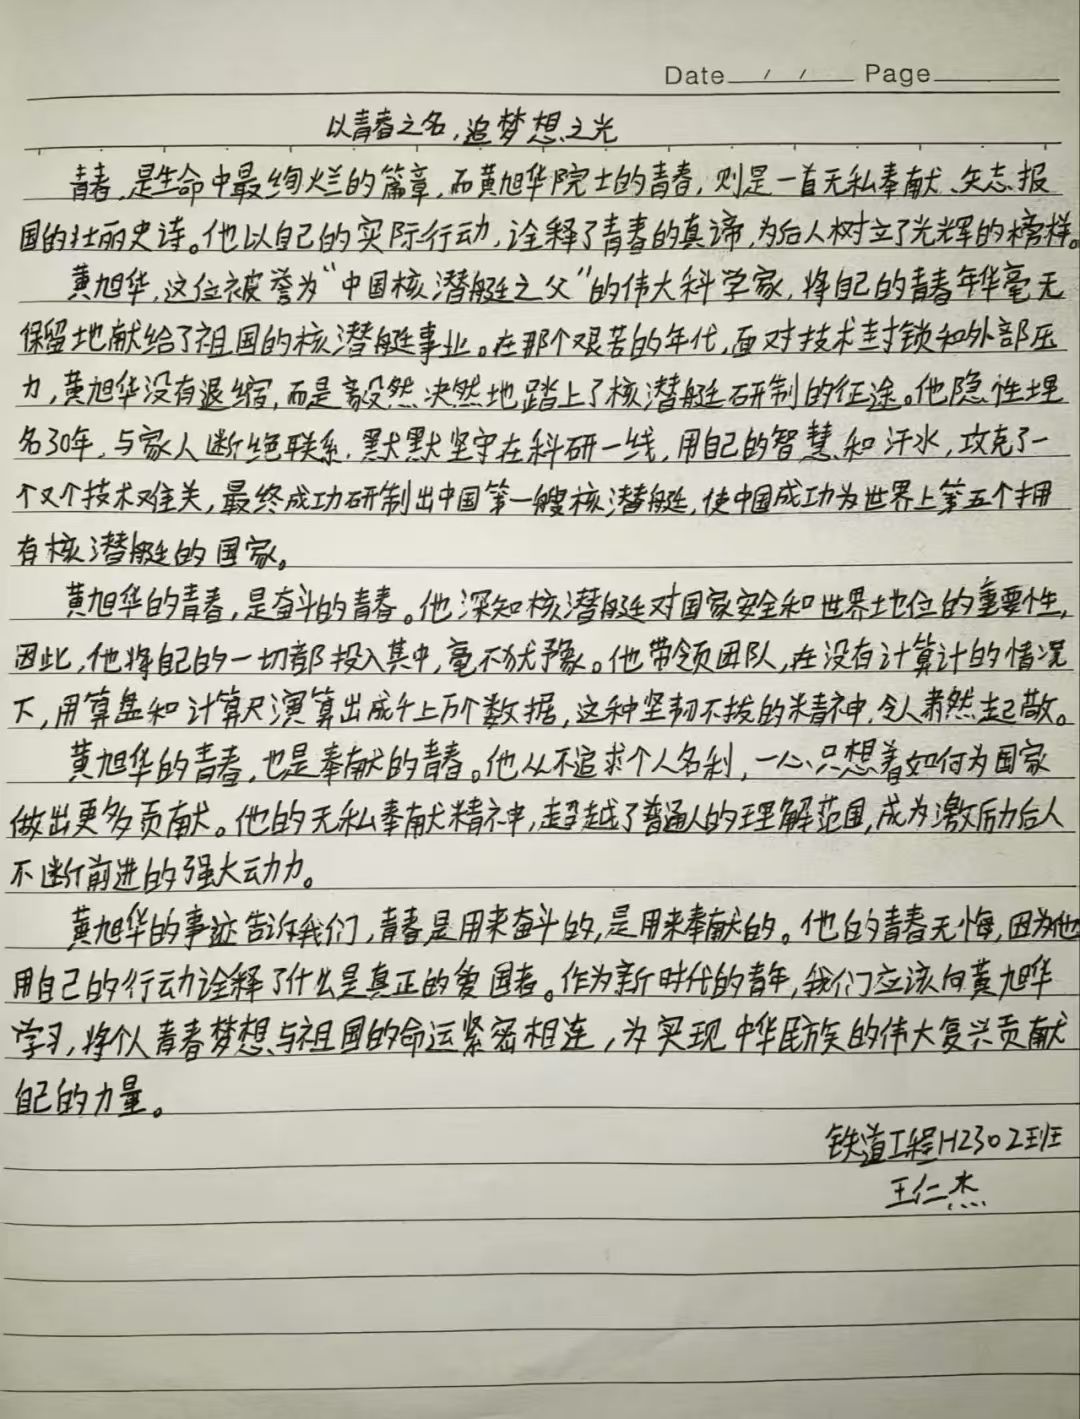 Date / / Page
以青春之名,追梦想之光
青春,是生命中最绚烂的篇章,而黄旭华院士的青春,则是一首无私奉献、矢志报
国的壮丽史诗。他以自己的实际行动,诠释了青春的真谛,为后人树立了光辉的榜样。
黄旭华,这位被誉为“中国核潜艇之父”的伟大科学家,将自己的青春年华毫无
保留地献给了祖国的核潜艇事业。在那个艰苦的年代,面对技术封锁和外部压
力,黄旭华没有退缩,而是毅然决然地踏上了核潜艇研制的征途。他隐性埋
名30年,与家人断绝联系,默默坚守在科研一线,用自己的智慧和汗水,攻克了一
个又个技术难关,最终成功研制出中国第一艘核潜艇,使中国成功为世界上第五个拥
有核潜艇的国家。
黄旭华的青春,是奋斗的青春。他深知核潜艇对国家安全和世界地位的重要性,
因此,他将自己的一切都投入其中,毫不犹豫。他带领团队,在没有计算计的情况
下,用算盘和计算尺演算出成千上万个数据,这种坚韧不拔的精神,令人肃然起敬。
黄旭华的青春,也是奉献的青春。他从不追求个人名利,一心只想着如何为国家
做出更多贡献。他的无私奉献精神,超越了普通人的理解范围,成为激励后人
不断前进的强大动力。
黄旭华的事迹告诉我们,青春是用来奋斗的,是用来奉献的。他的青春无悔,因为他
用自己的行动诠释了什么是真正的爱国者。作为新时代的青年,我们应该向黄旭华
学习,将个人青春梦想与祖国的命运紧密相连,为实现中华民族的伟大复兴贡献
自己的力量。
铁道工程H2302班
王仁杰